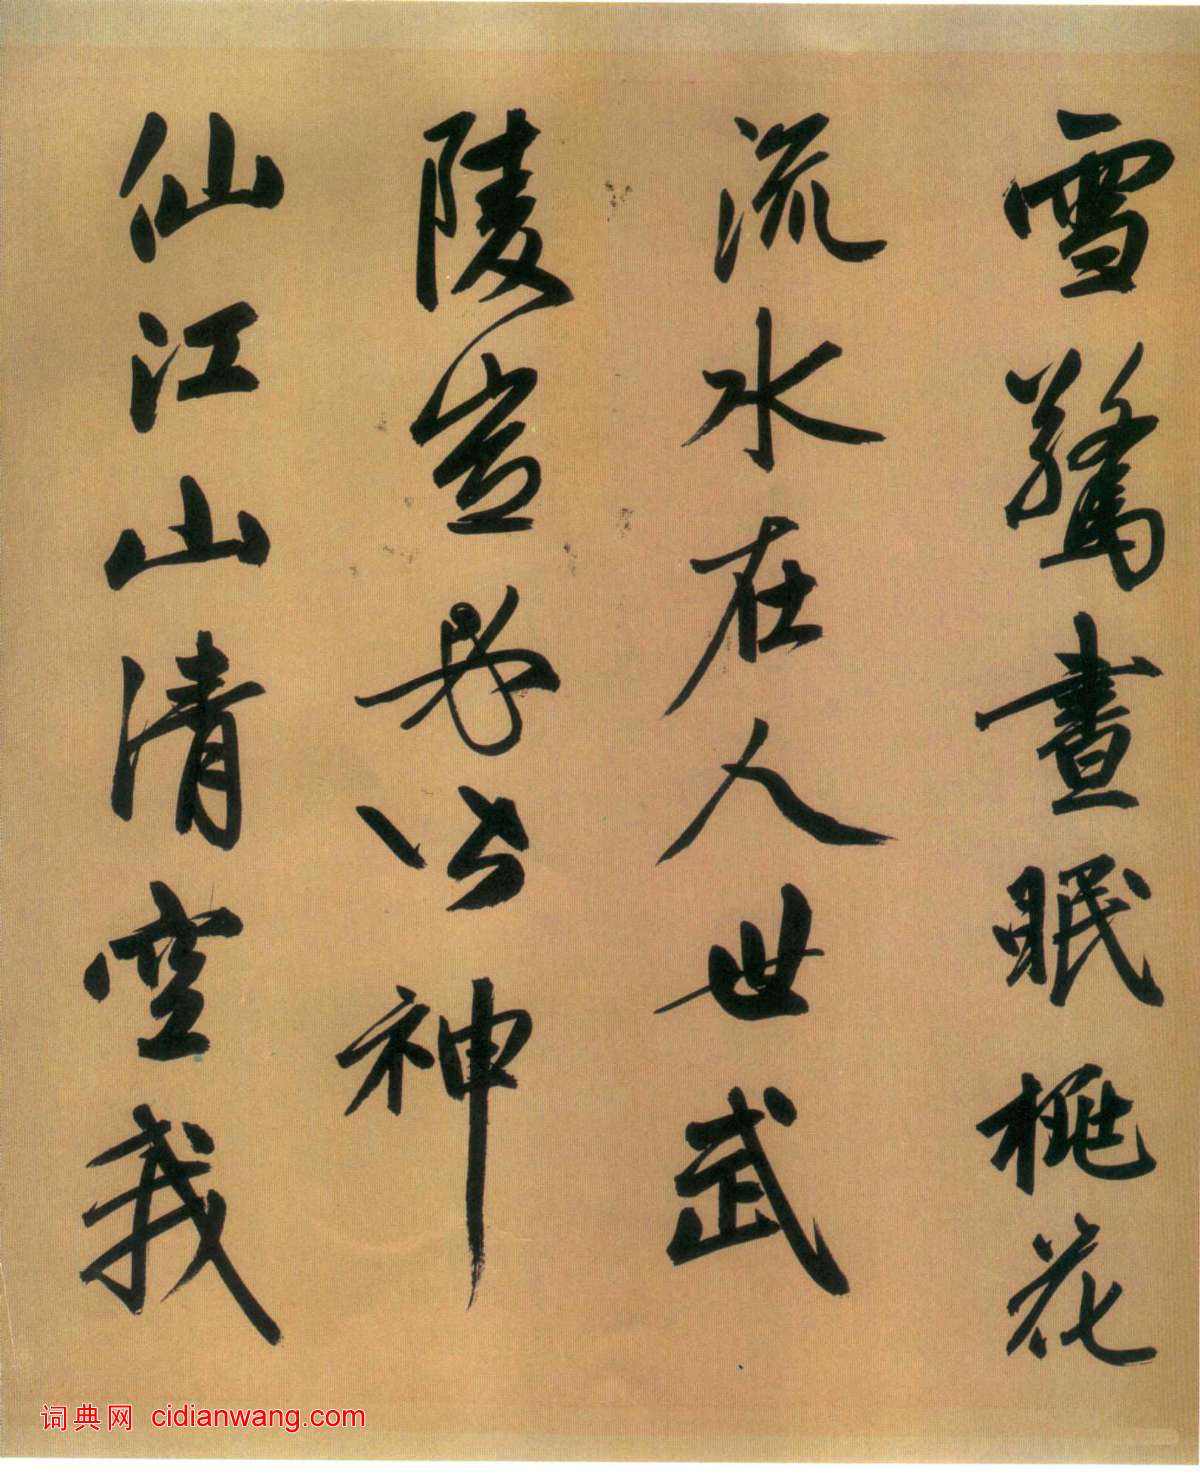 雪驚晝眠桃花
流水在人世武
陵豈必皆神
仙江山清空我
词典网 cidianwang.com